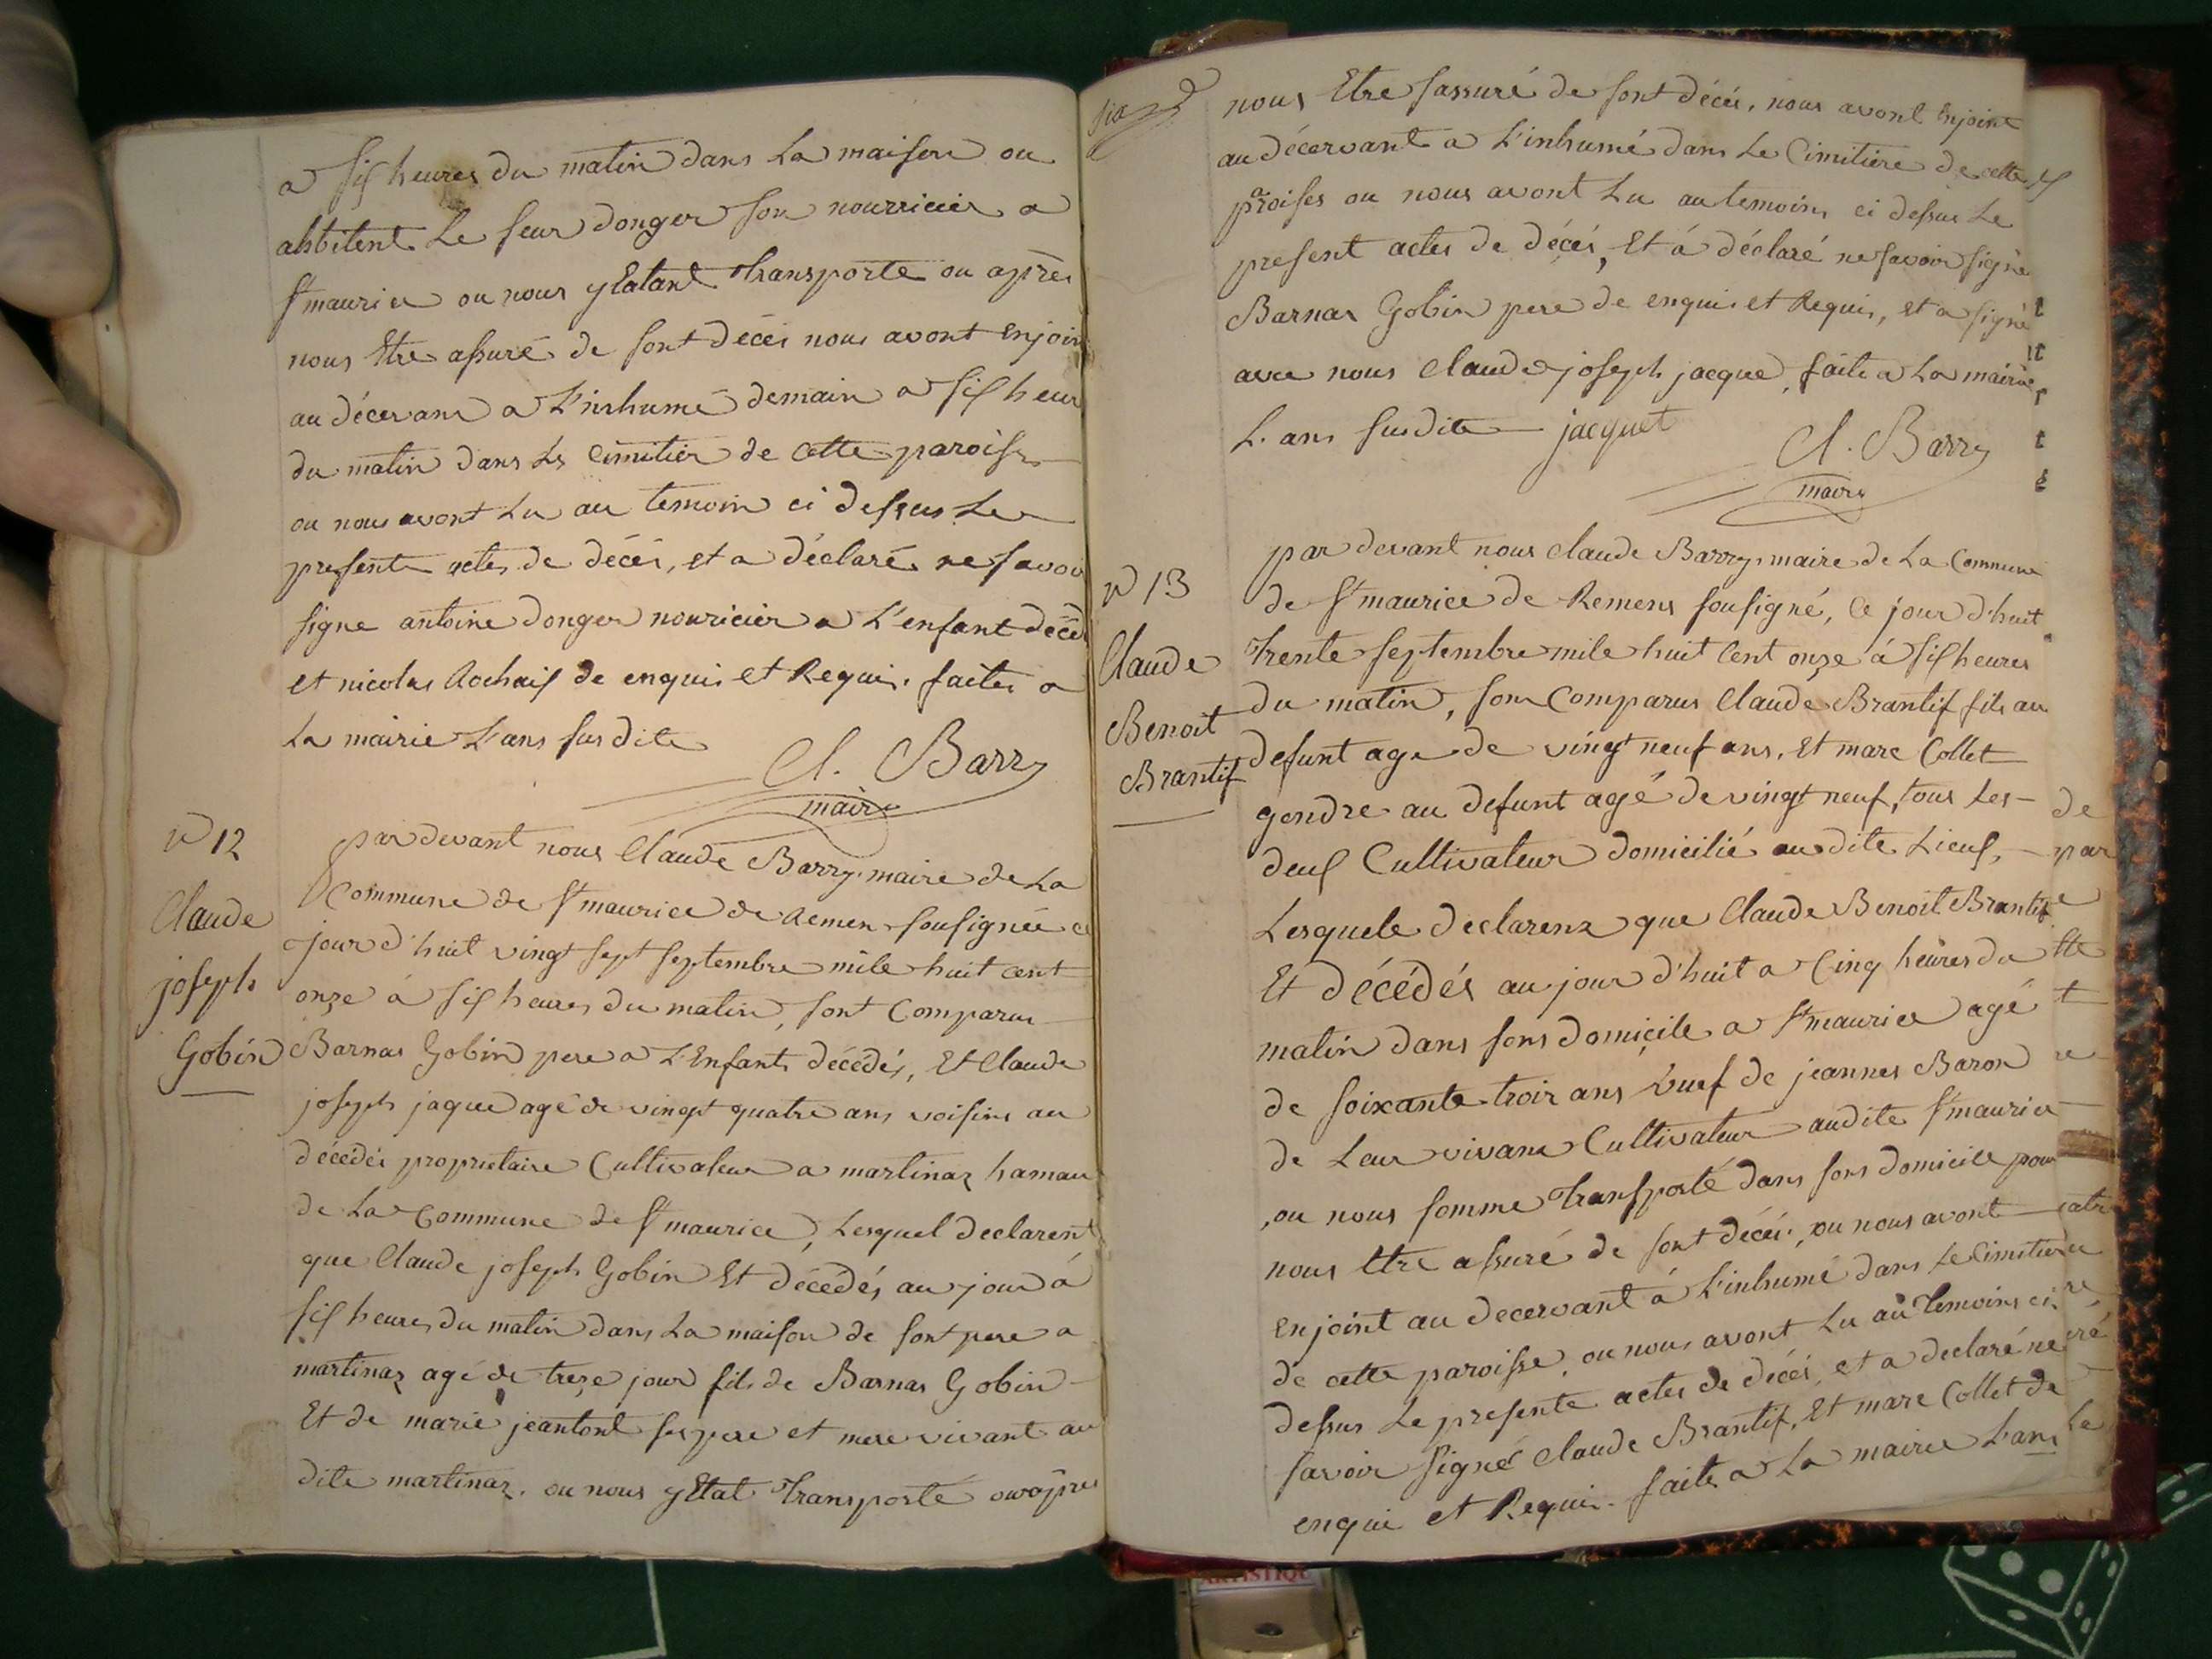 a six heures du matin dans La maison ou
abbitent Le seur donger son nourricier a
St maurice ou nous y Etatant Transporte ou après
nous Etre assuré de sont décéi nous avont Enjoin
au décervans a L'inhumé demain a six heur
du matin dans Le cimitier de cette paroisse
ou nous avont Lu au temoin ci dessus Le
presente actes de décéi, et a déclaré ne savoir
signe antoine donger nouricier a L'enfant décéd
et nicolas Rochaix de enquis et Requis. faites a
La mairie L'ans susdite
Cl. Barry
maire
N 12
Claude
joseph
Gobin
par devant nous Claude Barry. maire de La
Commune de St maurice de Remen sousignée ce
jour d'huit vingt sept septembre mile huit cent
onze à six heures du matin, sont Comparus
Barnas Gobin pere a L'Enfants décédés, Et Claude
joseph jaque agé de vingt quatre ans voisins au
décédéi proprietaire Cultivateur a martinaz hamau
de La Commune de St maurice, Lesquel declarent
que Claude joseph Gobin Et décédés au jour à
six heures du matin dans La maison de sont pere a
martinaz agé de treze jour fils de Barnas Gobin
Et de marie jeantont ses pere et mere vivant au
dite martinaz. ou nous y Etat Transporté ou apres
nous Etre sassuré de sont décéi, nous avont Enjoint
au décervant a L'inhumé dans Le Cimitiere de cette
paroises ou nous avont Lu au temoins ci dessus Le
present actes de décéi, Et à déclaré ne savoir signe
Barnas Gobin pere de enquis et Requis, et a signé
avec nous Claude joseph jacque, faite a La mairie
L. ans susdite jacquet
Cl. Barry
maire
N 13
Claude
Benoit
Brantif
par devant nous Claude Barry. maire de La Commune
de St maurice de Remens sousigné, Ce jour d'huit
Trente septembre mile huit Cent onze à six heures
du matin, son Comparus Claude Brantif fils au
defunt age de vingt neuf ans, Et marc Collet
gendre au defunt agé de vingt neuf, tous Les
deux Cultivateur domicilié au dite Lieux,
Lesquele declarens que Claude Benoit Brantif
Et décédés au jour d'huit a Cinq heures du
matin dans sons domicile a St maurice agé
de soixante trois ans vuef de jeannes Baron
de Leur vivans Cultivateur audite St maurice
, ou nous somme Transporté dans sons domicile pour
nous Etre assuré de sont décéi, ou nous avont
enjoint au decervant à L'inhumé dans Le Cimitiere
de cette paroisse ou nous avont Lu au Temoins ci
dessus Le presente actes de décéi, et a declaré ne
savoir signé Claude Brantif, Et marc Collet de
enqui et Requis. faite a La mairie L'ans